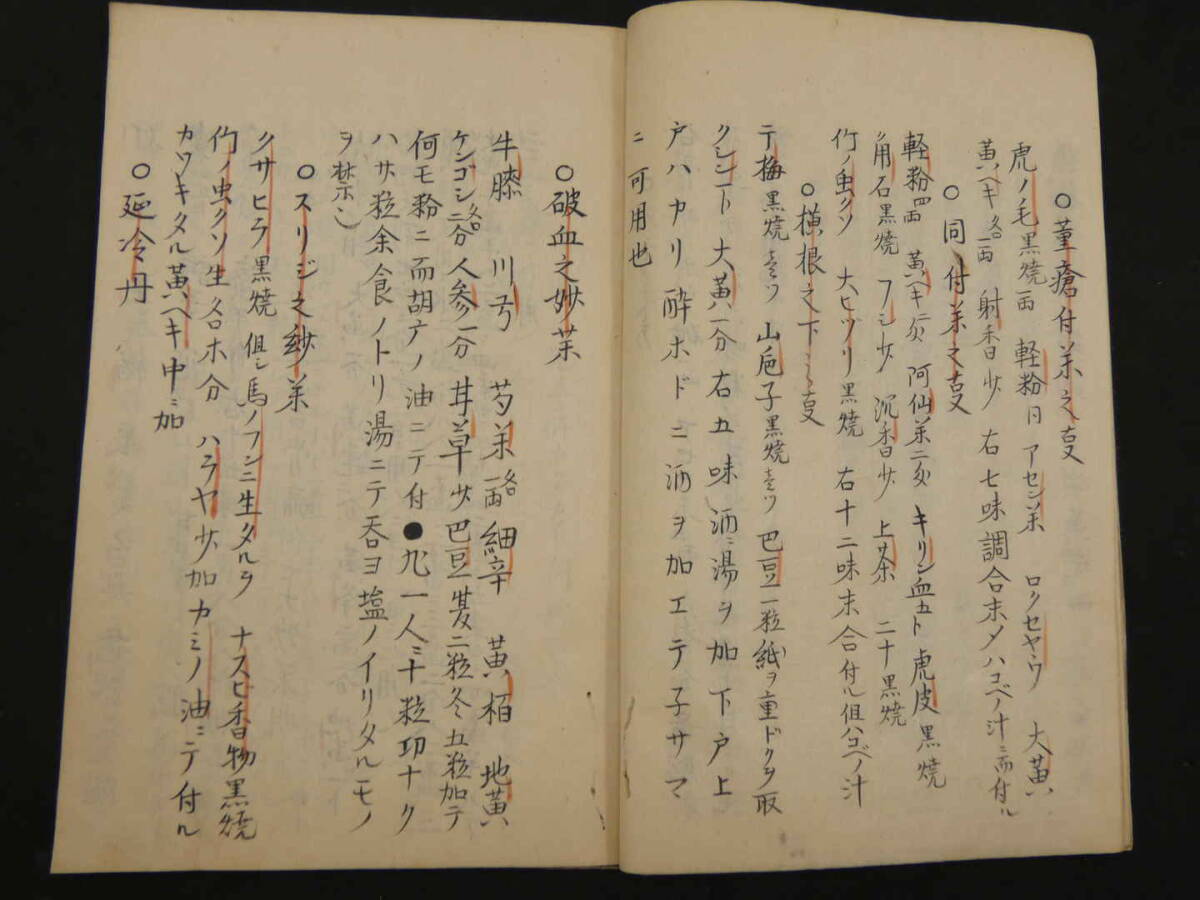 ○菫瘡付薬之㕝
虎ノ毛黒焼一両 軽粉同 アセン薬 ロクセヤウ 大黄
黄ヘキ各一両 射香少 右七味調合末〆ハコベノ汁ニ而付ル
○同付薬之㕝
軽粉四両 黄ヘキ二匁 阿仙薬二匁 キリン血五卜 虎皮黒焼
角石黒焼 フシ少 沉香少 上茶 二十黒焼
竹ノ虫クソ 大ヒヅリ黒焼 右十二味末合付ル但ハコベノ汁
○横根之下シ之㕝
テ梅黒焼壱ツ 山巵子黒焼壱ツ 巴豆一粒紙ヲ重ドクヲ取
クシン下 大黄一分右五味酒ニ湯ヲ加下戸上
戸ハカリ酔ホドニ酒ヲ加エテ子サマ
ニ可用也
○破血之妙薬
牛膝 川芎 芍薬各一両 細辛 黄栢 地黄
ケンゴシ各二分 人参一分 甘草少 巴豆夏二粒冬五粒加テ
何モ粉ニ而胡戸ノ油ニテ付●丸一人ニ十粒功ナク
ハサ粒余食ノトリ湯ニテ呑ヨ塩ノイリタルモノ
ヲ禁ン
○スリジ之紗薬
クサヒラ黒焼但シ馬ノフンニ生タルヲ ナスヒ香物黒焼
竹ノ虫クソ生各ホ分 ハラヤ少加カミノ油ニテ付ル
カワキタル黄ヘキ中ニ加
○延冷丹